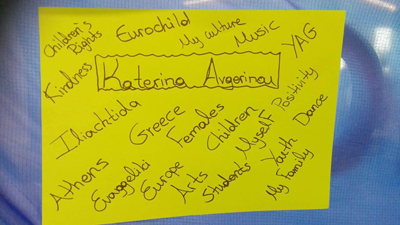 Children's
Rights
Eurochild
My culture
Music
YAG
Kindness
Katerina Avgerinou
Positivity
Iliachtida
Greece
Females
Children
Myself
Dance
Athens
Evaggeliki
Europe
Arts
Students
Youth
My Family